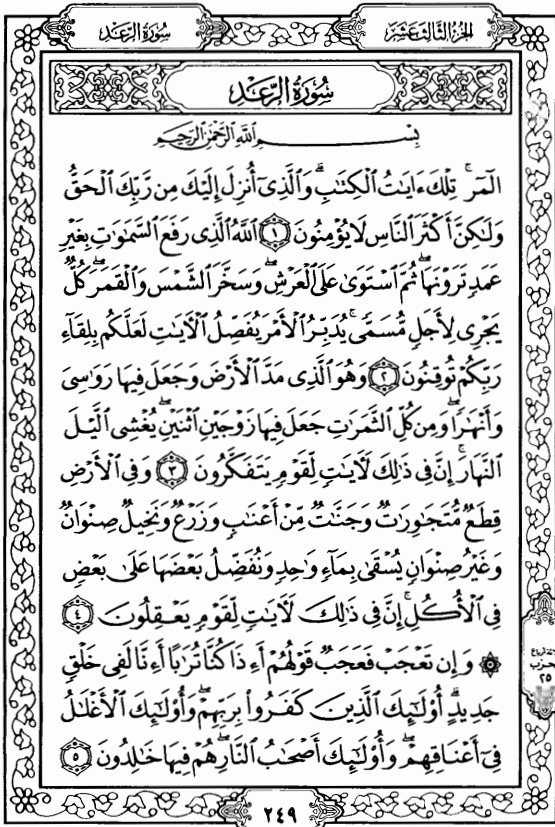 سُورَةُ الرَّعْدِ
الجُزْءُ الثَّالِثَ عَشَرَ
سُورَةُ الرَّعْدِ
بِسْمِ ٱللَّهِ ٱلرَّحْمَٰنِ ٱلرَّحِيمِ
الٓمٓرۚ تِلْكَ ءَايَٰتُ ٱلْكِتَٰبِۗ وَٱلَّذِىٓ أُنزِلَ إِلَيْكَ مِن رَّبِّكَ ٱلْحَقُّ
وَلَٰكِنَّ أَكْثَرَ ٱلنَّاسِ لَا يُؤْمِنُونَ ١ ٱللَّهُ ٱلَّذِى رَفَعَ ٱلسَّمَٰوَٰتِ بِغَيْرِ
عَمَدٍ تَرَوْنَهَاۖ ثُمَّ ٱسْتَوَىٰ عَلَى ٱلْعَرْشِۖ وَسَخَّرَ ٱلشَّمْسَ وَٱلْقَمَرَۖ كُلٌّ
يَجْرِى لِأَجَلٍ مُّسَمًّىۚ يُدَبِّرُ ٱلْأَمْرَ يُفَصِّلُ ٱلْءَايَٰتِ لَعَلَّكُم بِلِقَآءِ
رَبِّكُمْ تُوقِنُونَ ٢ وَهُوَ ٱلَّذِى مَدَّ ٱلْأَرْضَ وَجَعَلَ فِيهَا رَوَٰسِىَ
وَأَنْهَٰرًاۖ وَمِن كُلِّ ٱلثَّمَرَٰتِ جَعَلَ فِيهَا زَوْجَيْنِ ٱثْنَيْنِۖ يُغْشِى ٱلَّيْلَ
ٱلنَّهَارَۚ إِنَّ فِى ذَٰلِكَ لَءَايَٰتٍ لِّقَوْمٍ يَتَفَكَّرُونَ ٣ وَفِى ٱلْأَرْضِ
قِطَعٌ مُّتَجَٰوِرَٰتٌ وَجَنَّٰتٌ مِّنْ أَعْنَٰبٍ وَزَرْعٌ وَنَخِيلٌ صِنْوَانٌ
وَغَيْرُ صِنْوَانٍ يُسْقَىٰ بِمَآءٍ وَٰحِدٍ وَنُفَضِّلُ بَعْضَهَا عَلَىٰ بَعْضٍ
فِى ٱلْأُكُلِۚ إِنَّ فِى ذَٰلِكَ لَءَايَٰتٍ لِّقَوْمٍ يَعْقِلُونَ ٤
۞ وَإِن تَعْجَبْ فَعَجَبٌ قَوْلُهُمْ أَءِذَا كُنَّا تُرَٰبًا أَءِنَّا لَفِى خَلْقٍ
جَدِيدٍۗ أُو۟لَٰٓئِكَ ٱلَّذِينَ كَفَرُوا۟ بِرَبِّهِمْۖ وَأُو۟لَٰٓئِكَ ٱلْأَغْلَٰلُ
فِىٓ أَعْنَاقِهِمْۖ وَأُو۟لَٰٓئِكَ أَصْحَٰبُ ٱلنَّارِۖ هُمْ فِيهَا خَٰلِدُونَ ٥
الحزب
٢٥
٢٤٩